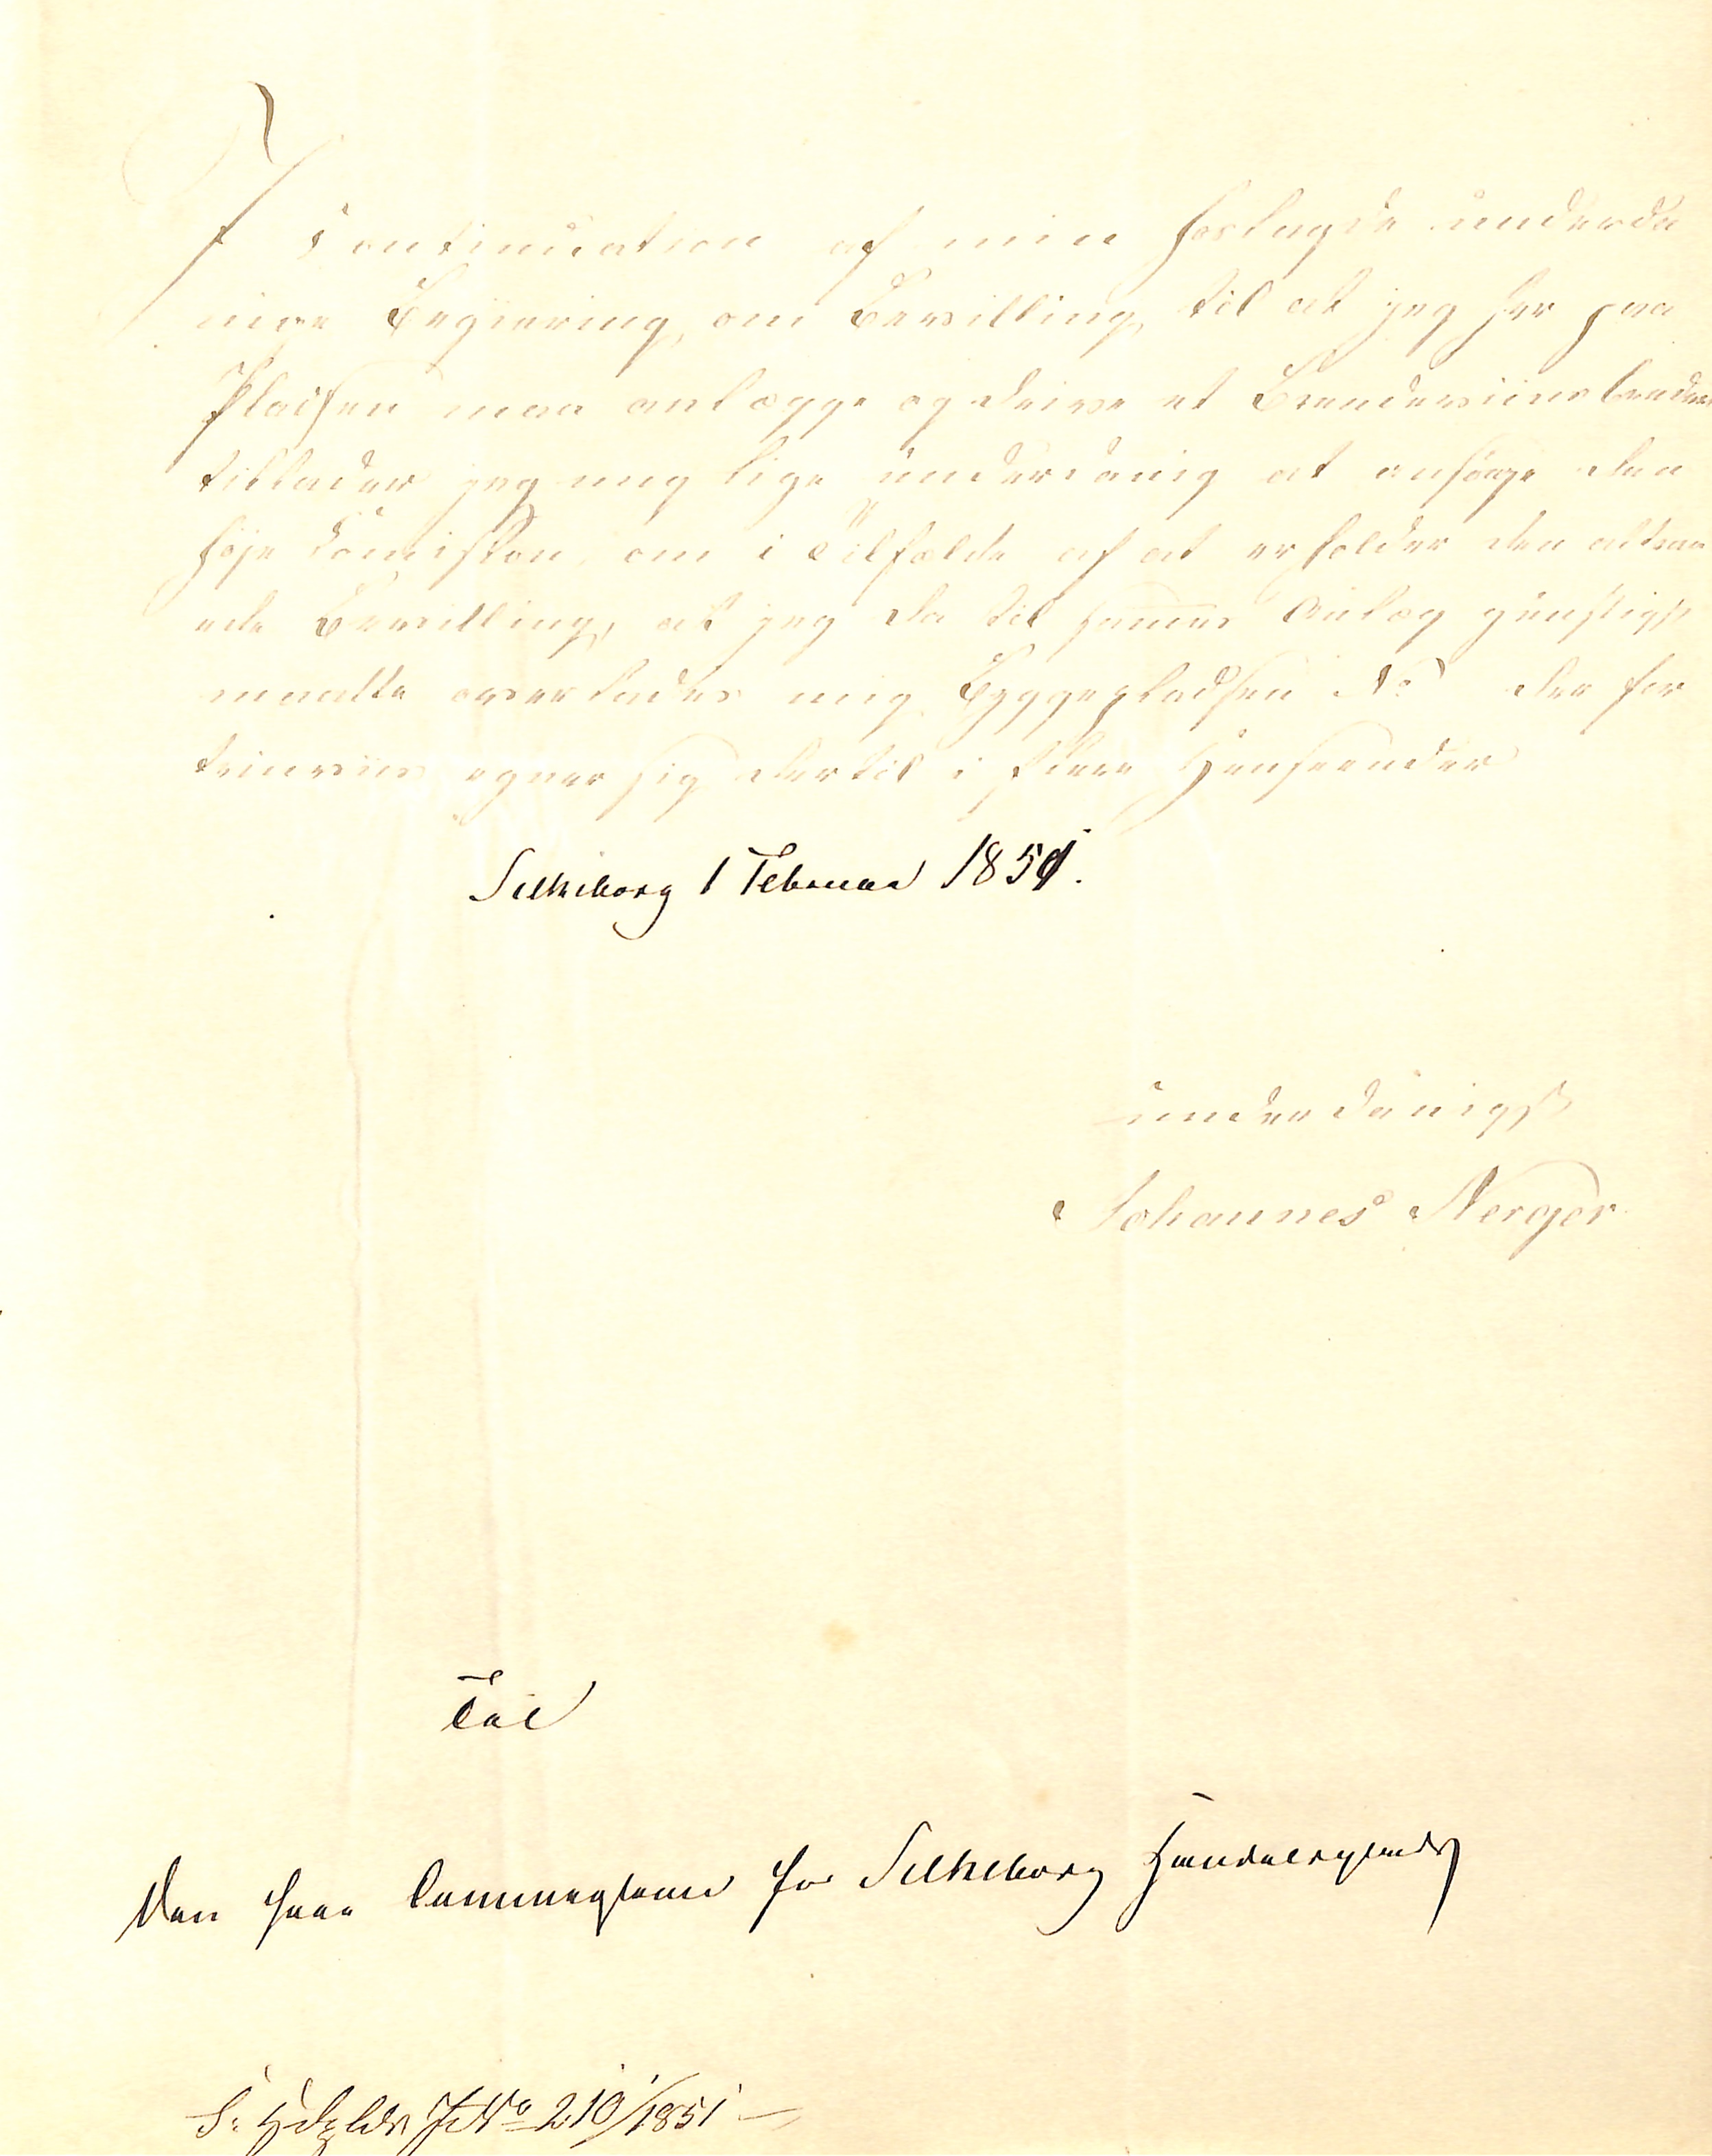 I Continuation af min forlagde underda
nige Begjering om Bevilling til at jeg her paa
Pladsen maa anlægge og drive et Brændeviinsbrænderi
tillader jeg mig lige underdanig at ansøge den
høje Commission, om i Tilfælde af at erholder den attraa
ede Bevilling, at jeg da til sammes Anlæg gunstigst
maatte overlades mig Byggepladsen No der for
trinviis egner sig dertil i flere Henseender
Silkeborg 1 Februar 1851.
underdanigst
Johannes Nerger
Til
Den høie Commission for Silkeborg Handelsplads
S: Hdlplds JNo 210/1851